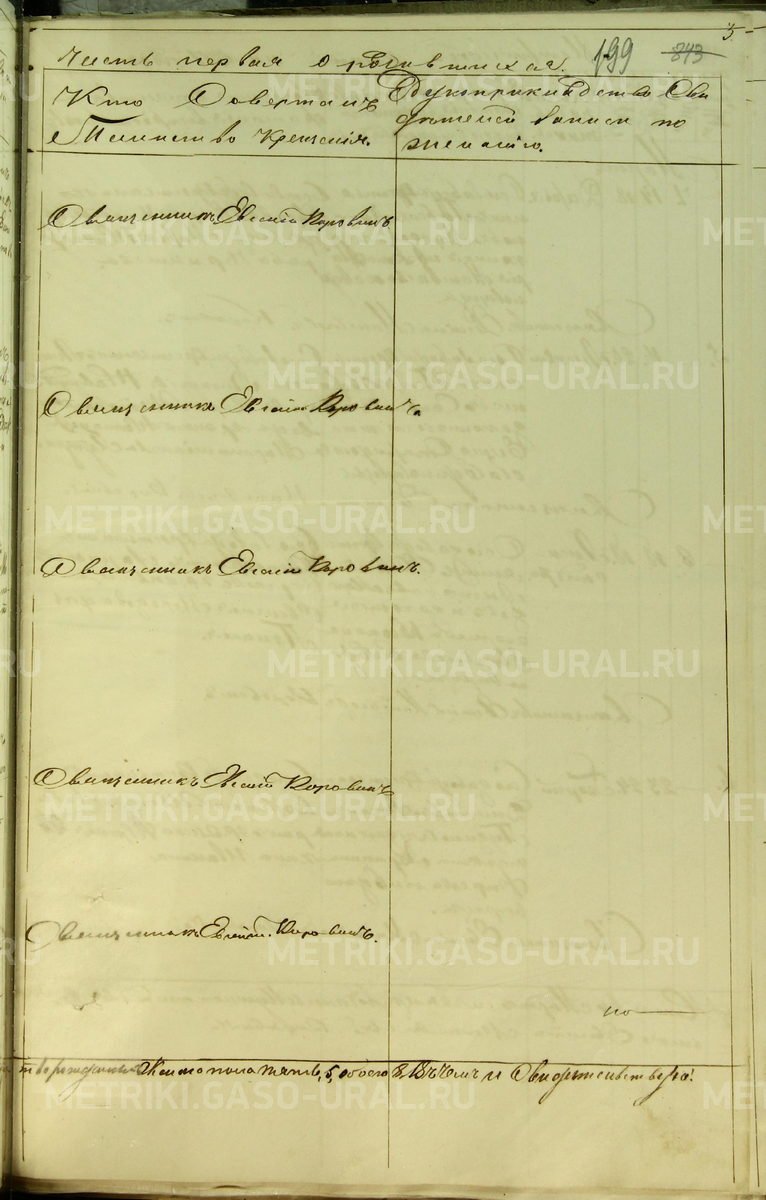 3
Часть первая о родившихся. 199 843
Кто Совершалъ
Таинство крещенія.
Рукоприкладство Сви
дѣтелей записи по
желанію.
Священникъ Евсегій Коровинъ
Священникъ Евсегій Коровинъ.
Священникъ Евсегій Коровинъ.
Священникъ Евсегій Коровинъ
Священникъ Евсегій Коровинъ.
но
Женска пола пять, 5, обоего 8, Въ чемъ и Свидѣтельствую!
METRIKI.GASO-URAL.RU